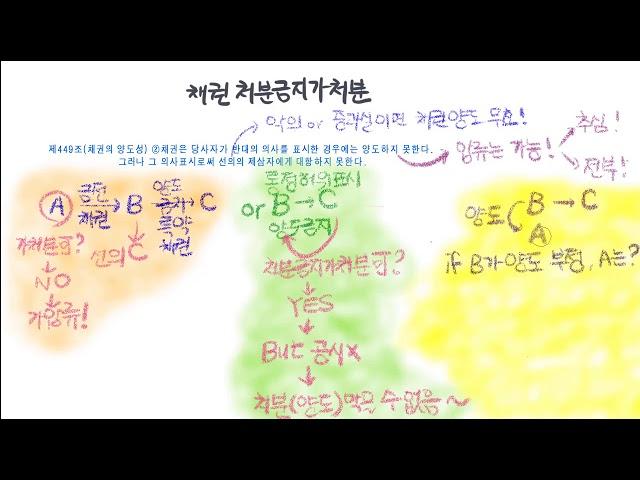 채권 처분금지가처분
악의 or 중과실이면 채권양도 무효!
제449조(채권의 양도성) ②채권은 당사자가 반대의 의사를 표시한 경우에는 양도하지 못한다.
그러나 그 의사표시로써 선의의 제삼자에게 대항하지 못한다.
압류는 가능!
추심!
전부!
A 금전 채권 B 양도 금지 특약 채권 C
선의 C
가처분 可?
NO
가압류!
통정허위표시
or B → C
양도금지
처분금지가처분 可?
YES
But 공시 x
처분(양도) 막을 수 없음 ~
양도 B → C
A
if B가 양도 부정, A는?